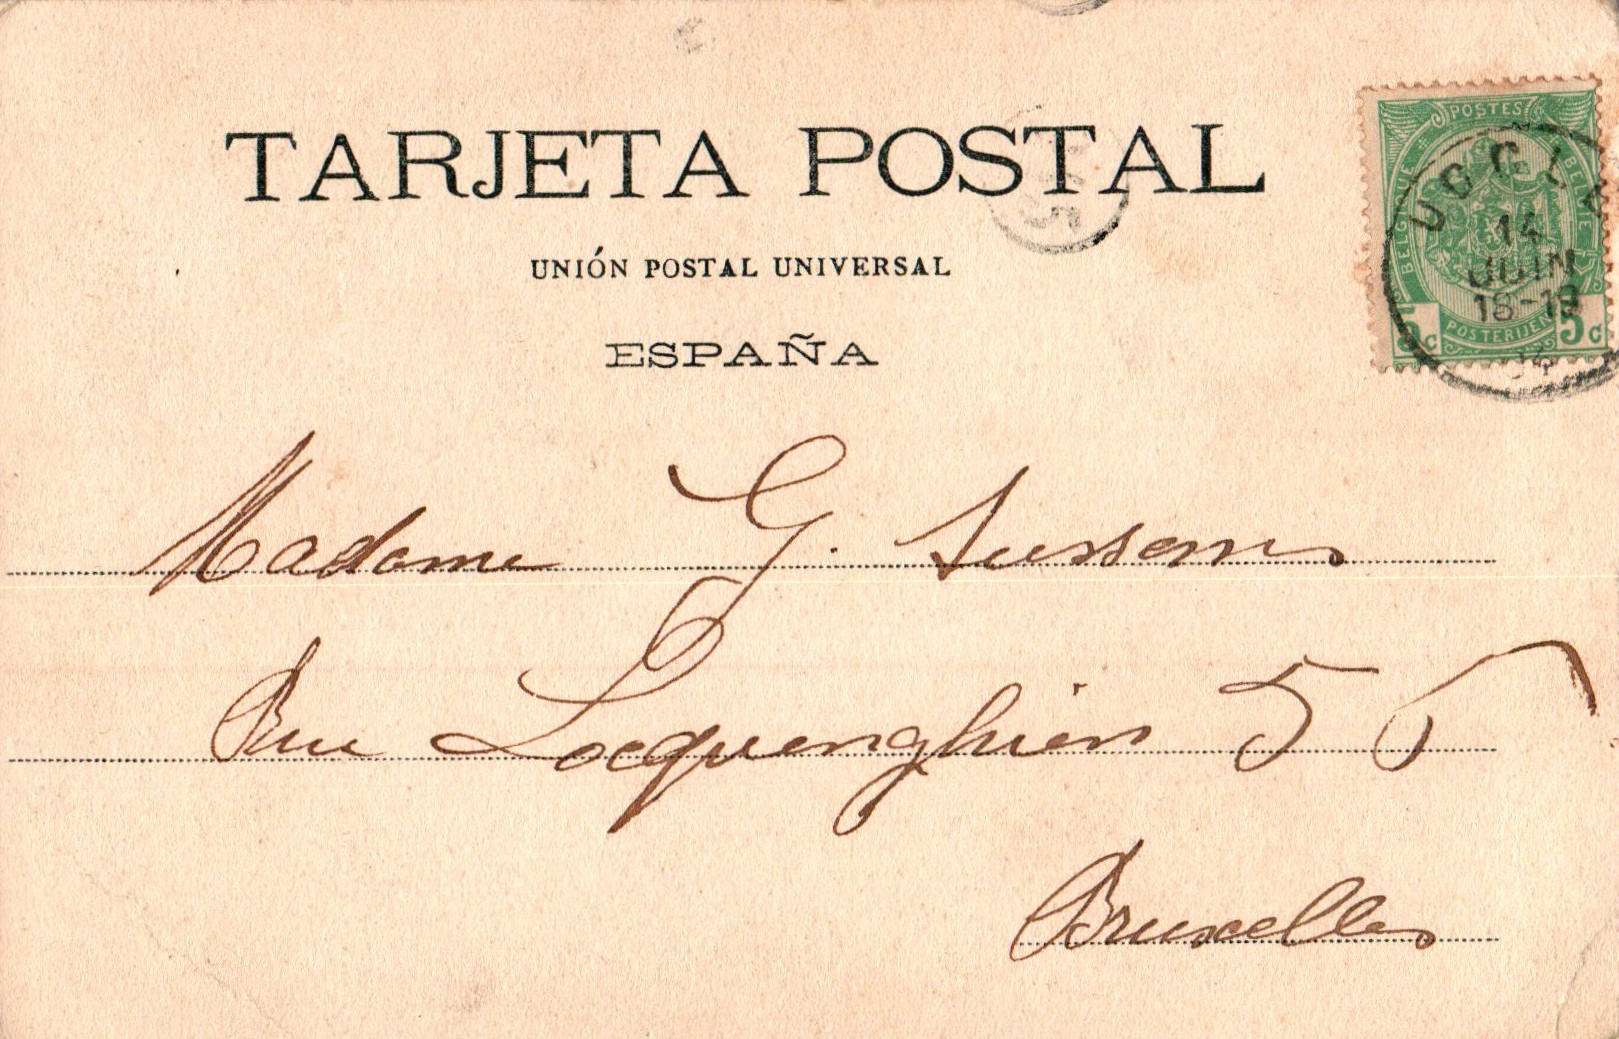 TARJETA POSTAL
UNIÓN POSTAL UNIVERSAL
ESPAÑA
POSTES
BELGIQUE
BELGIË
POSTERIJEN
5c 5c
14
JUIN
18-19
Madame G.
Rue Locquenghien 56
Bruxelles